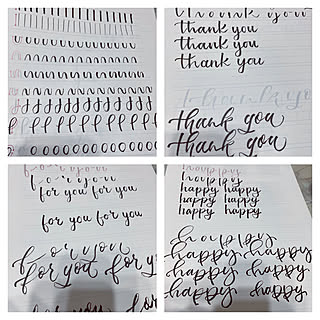 thank you
thank you
thank you
thank you
thank yo
thank you
thank you
for you
for you
for you for you
for you for you
for you
for you for y
for you
happy
happy happy
happy happy
happy happy
happy
happy happy
happy happy
happy happy